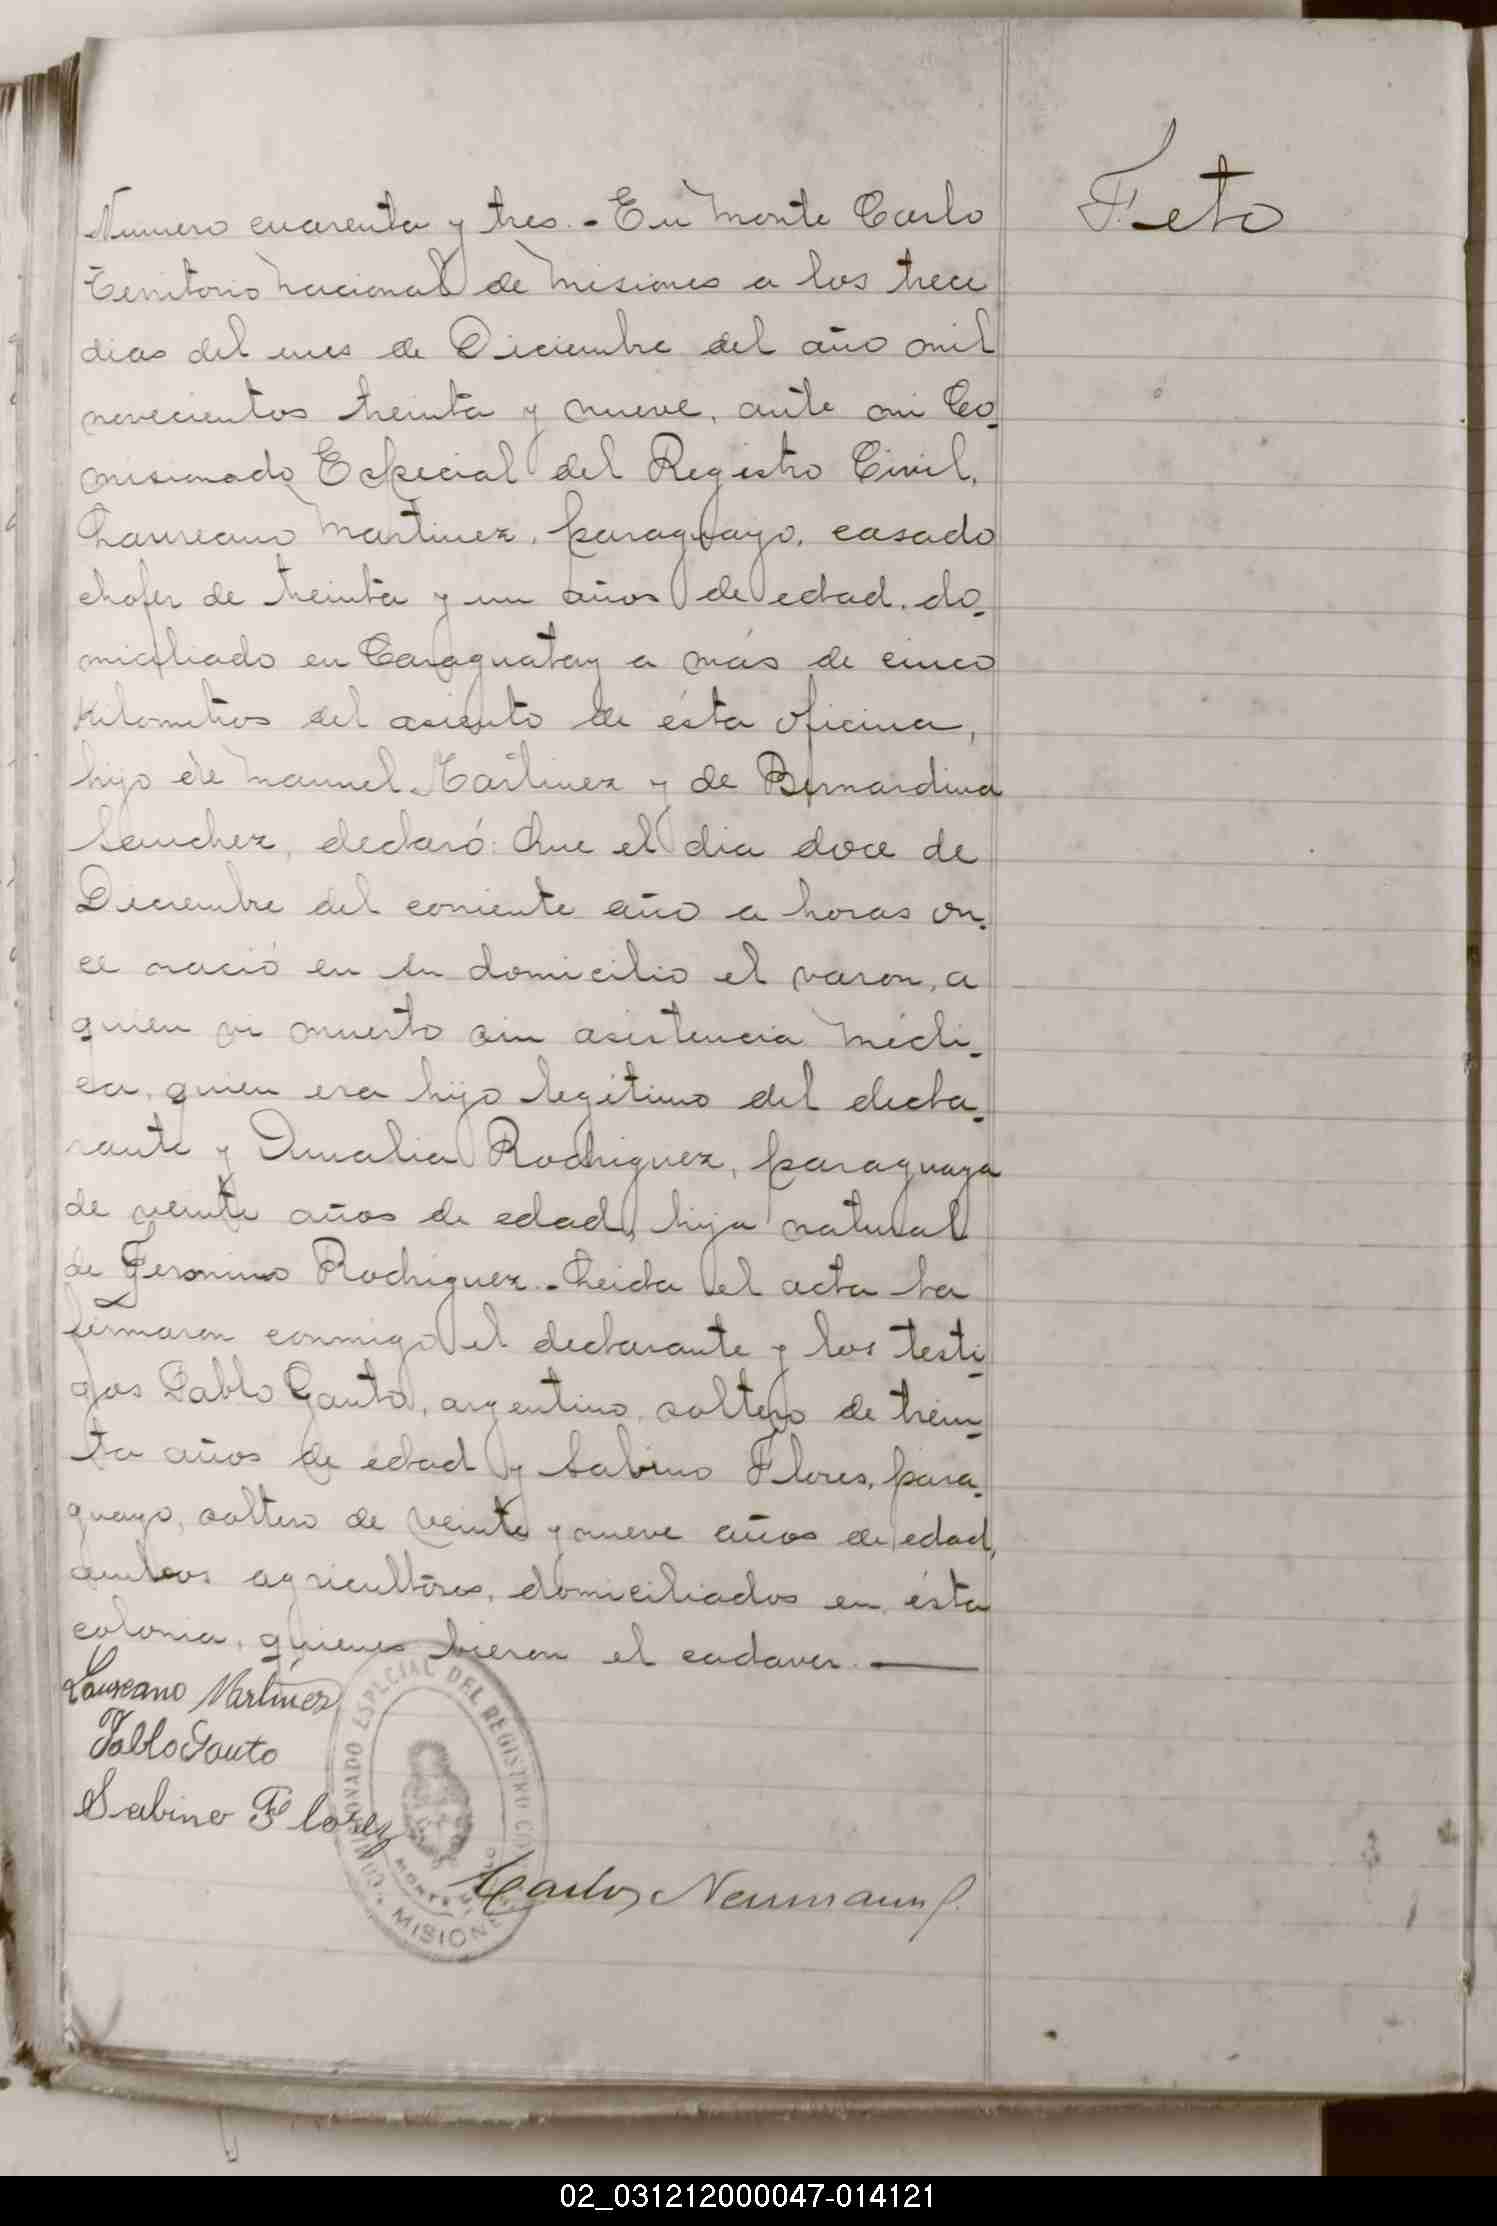 Feto
Numero cuarenta y tres.- En Monte Carlo
Territorio Nacional de Misiones a los trece
dias del mes de Diciembre del año mil
novecientos treinta y nueve, ante mi Co-
misionado Especial del Registro Civil,
Laureano Martinez, paraguayo, casado
chofer de treinta y un años de edad, do-
miciliado en Caraguatay a más de cinco
kilometros del asiento de ésta oficina,
hijo de Manuel Martinez y de Bernardina
Sanchez, declaró: Que el dia doce de
Diciembre del corriente año a horas on-
ce nació en su domicilio el varon, a
quien vi muerto sin asistencia médi-
ca, quien era hijo legitimo del decla-
rante y Amalia Rodriguez, paraguaya
de veinte años de edad, hija natural
de Geronimo Rodriguez.- Leida el acta la
firmaron conmigo el declarante y los testi-
gos Pablo Gauto, argentino, soltero de trein-
ta años de edad y Sabino Flores, para-
guayo, soltero de veinte y nueve años de edad,
ambos agricultores, domiciliados en ésta
colonia, quienes bieron el cadaver.
Laureano Martinez
Pablo Gauto
Sabino Florez
Carlos Neumann
COMISIONADO ESPECIAL DEL REGISTRO CIVIL
MONTE CARLO
MISIONES
02_031212000047-014121